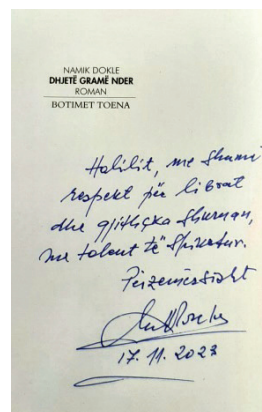 NAMIK DOKLE
DHJETË GRAMË NDER
ROMAN
BOTIMET TOENA
Halilit, me shumë
respekt për librat
dhe gjithçka shkruan,
me talent të spikatur.
Përzemërsisht
17.11.2023